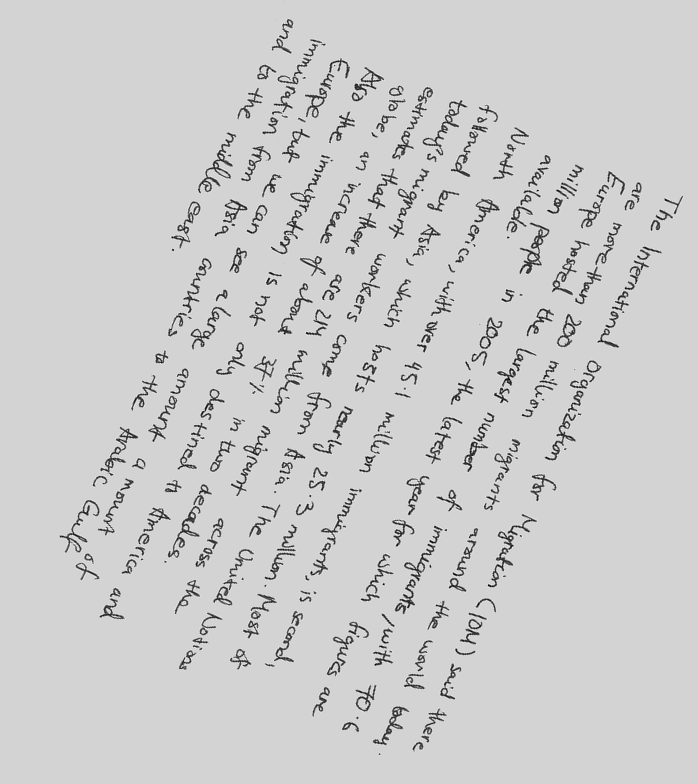 The International Organization for Migration (IOM) said there
are more than 200 million migrants around the world today.
Europe hosted the largest number of immigrants, with 70.6
million people in 2005, the latest year for which figures are
available.
North America, with over 45.1 million immigrants, is second,
followed by Asia, which hosts nearly 25.3 million. Most of
today's migrant workers come from Asia. The United Nations
estimates that there are 214 million migrant across the
globe, an increase of about 37% in two decades.
Also the immigration is not only destined to America and
Europe, but we can see a large amount amount of
immigration from Asia countries to the Arabic Gulf
and to the middle east.